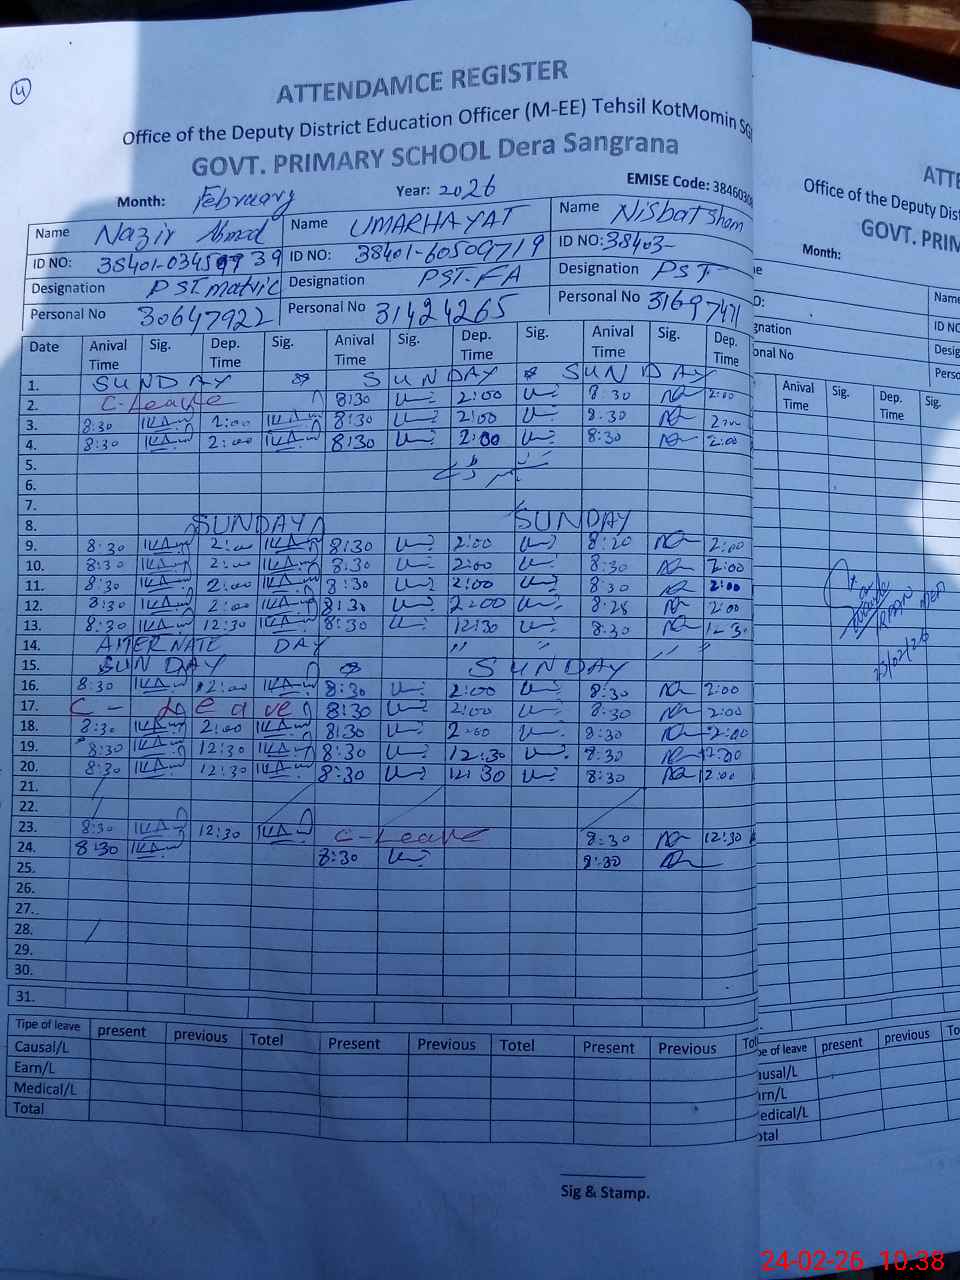 4
ATTENDAMCE REGISTER
Office of the Deputy District Education Officer (M-EE) Tehsil KotMomin
GOVT. PRIMARY SCHOOL Dera Sangrana
Month: February Year: 2026 EMISE Code: 3846030
Name Nazir Ahmad Name UMARHAYAT Name Nisbat
ID NO: ID NO: 38401-6050971 9 ID NO: 38403-
Designation PST matric Designation PST-FA Designation PST
Personal No 30647922 Personal No 31424265 Personal No 31697471
Date Anival Time Sig. Dep. Time Sig. Anival Time Sig. Dep. Time Sig. Anival Time Sig. Dep. Time
1. SUNDAY SUNDAY SUNDAY
2. C-Leave 8:30 2:00 8:30 2:00
3. 8:30 2:00 8:30 2:00 8:30 2:00
4. 8:30 2:00 8:30 2:00 8:30 2:00
5.
6.
7.
8. SUNDAY SUNDAY
9. 8:30 2:00 8:30 2:00 8:20 2:00
10. 8:30 2:00 8:30 2:00 8:30 2:00
11. 8:30 2:00 8:30 2:00 8:30 2:00
12. 8:30 2:00 8:30 2:00 8:28 2:00
13. 8:30 12:30 8:30 12:30 8:30 12:30
14. ALTERNATE DAY " " " "
15. SUNDAY SUNDAY
16. 8:30 2:00 8:30 2:00 8:30 2:00
17. C-Leave 8:30 2:00 8:30 2:00
18. 8:30 2:00 8:30 2:00 8:30 2:00
19. 8:30 12:30 8:30 12:30 8:30
20. 8:30 12:30 8:30 12:30 8:30 12:00
21.
22.
23. 8:30 12:30 C-Leave 8:30 12:30
24. 8:30 8:30 8:30
25.
26.
27.
28.
29.
30.
31.
Tipe of leave present previous Totel Present Previous Totel Present Previous
Causal/L
Earn/L
Medical/L
Total
Sig & Stamp.
Office of the Deputy Dis
GOVT. PRIM
Month:
Name
ID NO
Desig
Perso
Anival Time Sig. Dep. Time Sig.
23/02/26
present previous
24-02-26 10:38